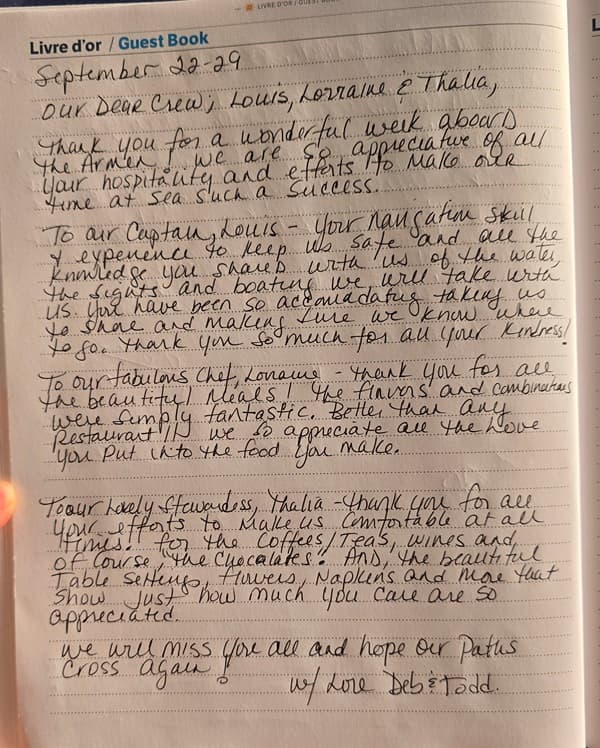 LIVRE D'OR / GUEST BOOK
Livre d'or / Guest Book
September 22-29
Our Dear Crew; Louis, Lorraine & Thalia,
Thank you for a wonderful week aboard
the Armen! We are so appreciative of all
your hospitality and efforts to make our
time at sea such a success.
To our Captain, Louis - your navigation skill
& experience to keep us safe and all the
knowledge you shared with us of the water,
the sights and boating we will take with
us. You have been so accomadating taking us
to shore and making sure we know where
to go. Thank you so much for all your kindness!
To our fabulous Chef, Lorraine - thank you for all
the beautiful meals! The flavors and combinations
were simply fantastic. Better than any
Restaurant!!! We so appreciate all the love
you put into the food you make.
To our lovely Stewardess, Thalia - thank you for all
your efforts to make us comfortable at all
times! For the Coffees/Teas, wines and,
of course, the chocolates! And, the beautiful
Table settings, flowers, Napkins and more that
show just how much you care are so
appreciated.
We will miss you all and hope our paths
cross again!
w/ Love Deb & Todd.
L